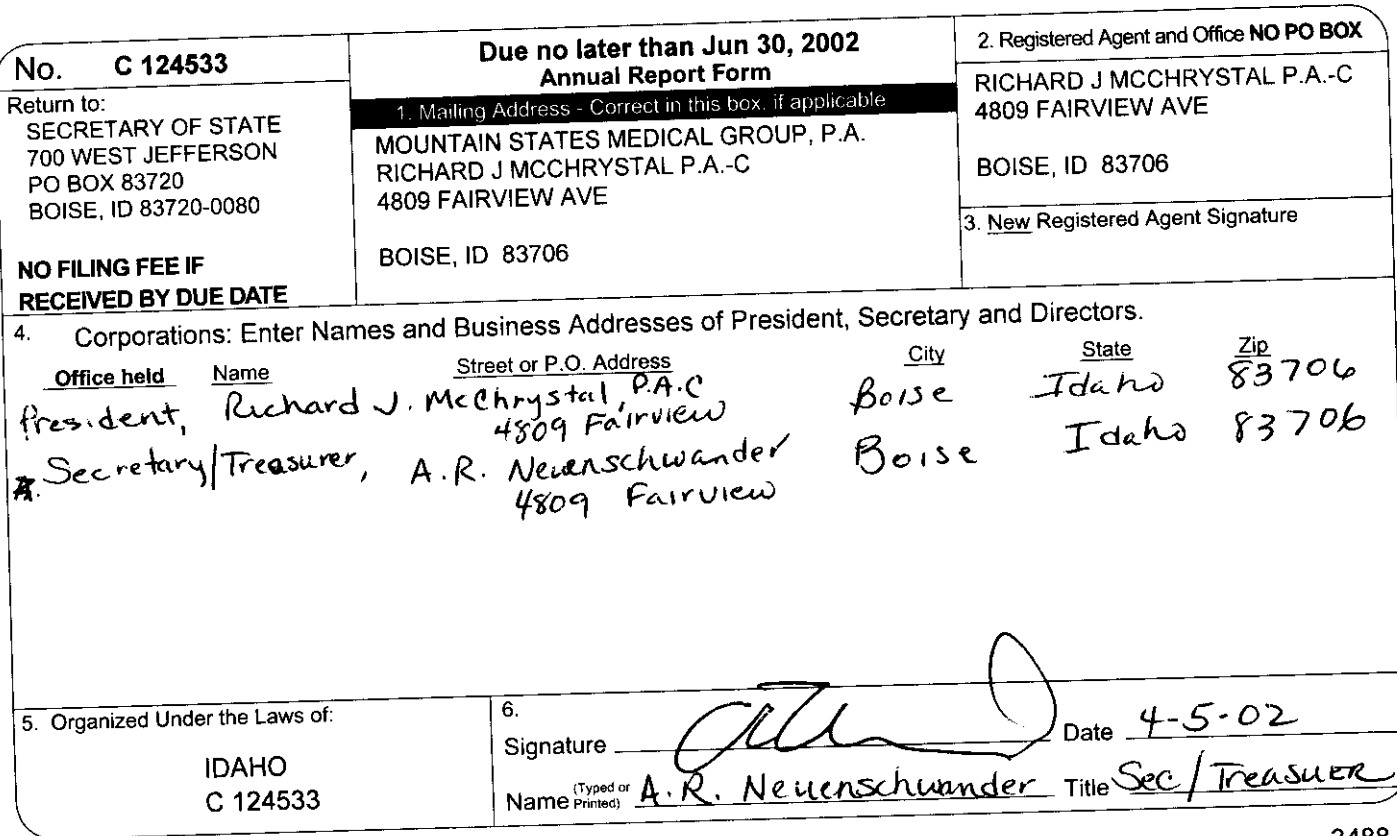 No. C 124533
Return to:
SECRETARY OF STATE
700 WEST JEFFERSON
PO BOX 83720
BOISE, ID 83720-0080
NO FILING FEE IF
RECEIVED BY DUE DATE
Due no later than Jun 30, 2002
Annual Report Form
1. Mailing Address - Correct in this box, if applicable
MOUNTAIN STATES MEDICAL GROUP, P.A.
RICHARD J MCCHRYSTAL P.A.-C
4809 FAIRVIEW AVE
BOISE, ID 83706
2. Registered Agent and Office NO PO BOX
RICHARD J MCCHRYSTAL P.A.-C
4809 FAIRVIEW AVE
BOISE, ID 83706
3. New Registered Agent Signature
4. Corporations: Enter Names and Business Addresses of President, Secretary and Directors.
Office held Name Street or P.O. Address City State Zip
President, Richard J. McChrystal, P.A.C Boise Idaho 83706
4809 Fairview
Secretary/Treasurer, A.R. Neuenschwander Boise Idaho 83706
4809 Fairview
5. Organized Under the Laws of:
IDAHO
C 124533
6.
Signature Date 4-5-02
Name (Typed or Printed) A.R. Neuenschwander Title Sec/Treasuer